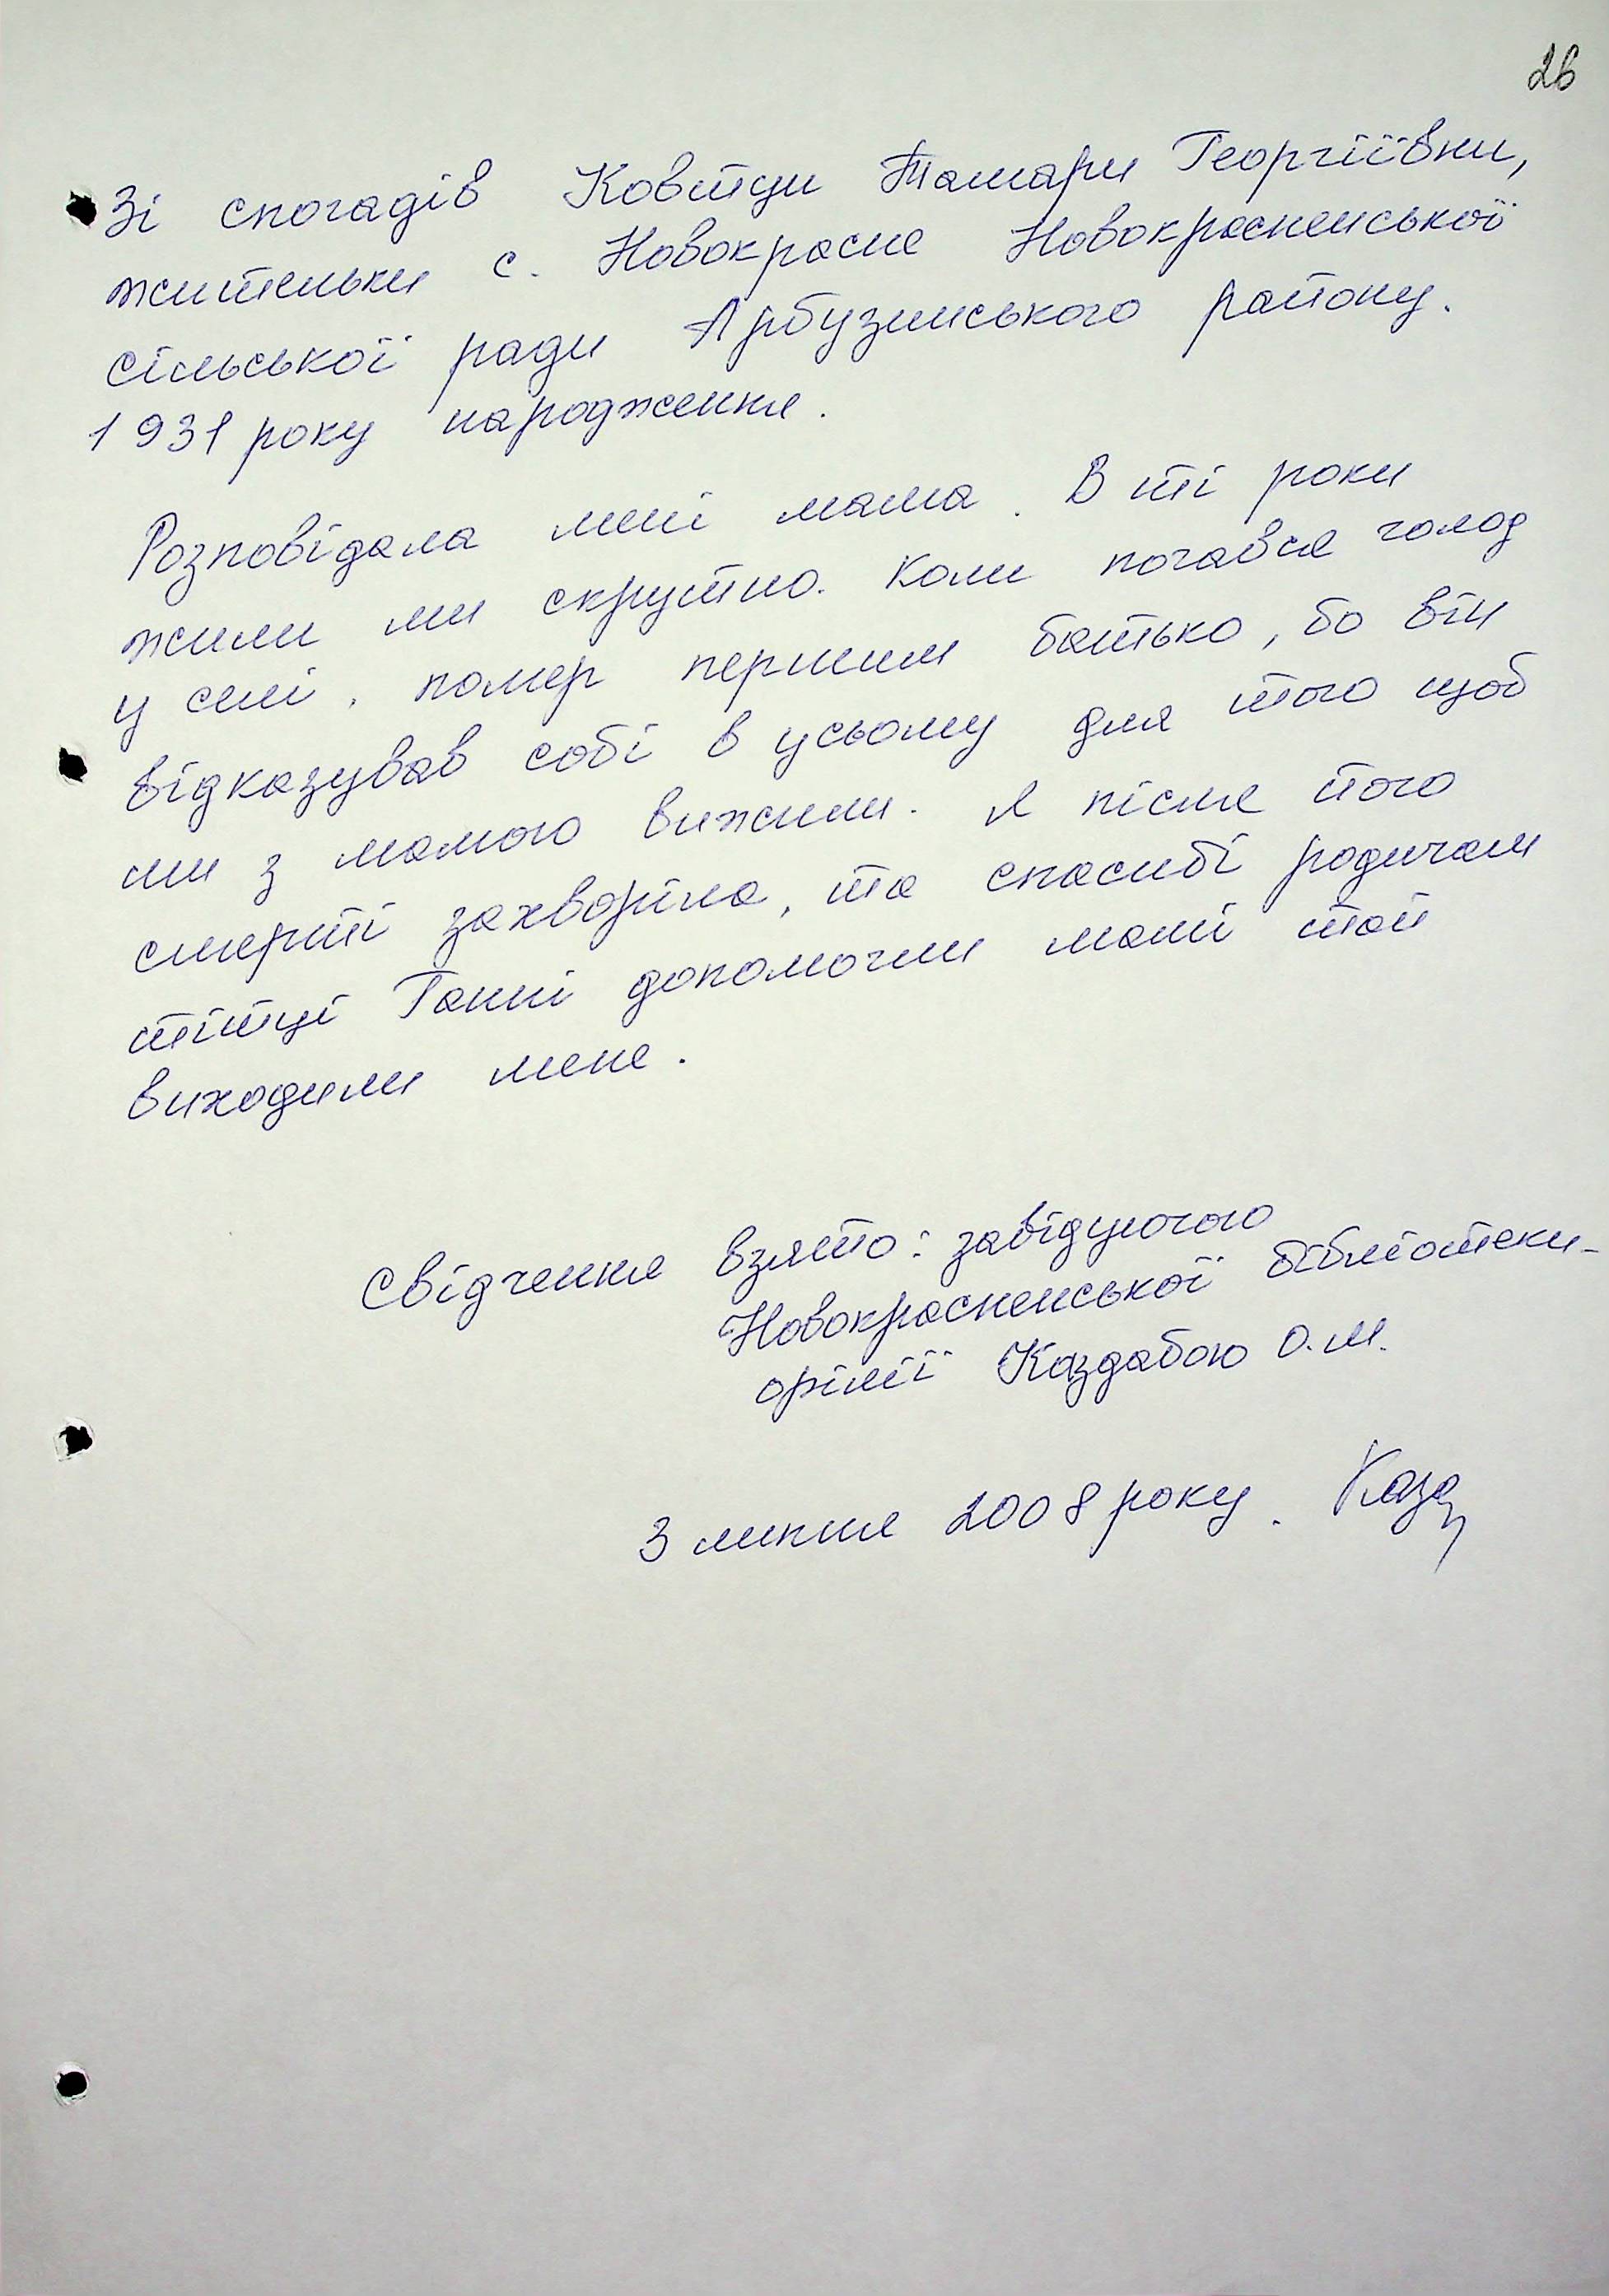 26
Зі спогадів Ковтуи Тамари Георгіївни,
жительки с. Новокрасне Новокрасненської
сільської ради Арбузинського району.
1931 року народження.
Розповідала мені мама. В ті роки
жили ми скрутно. Коли почався голод
у селі, помер першим батько, бо він
відказував собі в усьому для того щоб
ми з мамою вижили. Я після його
смерті захворіла, та спасибі родичам
тітці Ганні допомогли мамі той
виходили мене.
Свідчення взято: завідуючою
Новокрасненської бібліотеки-
філії Каздабою О.М.
3 липня 2008 року.